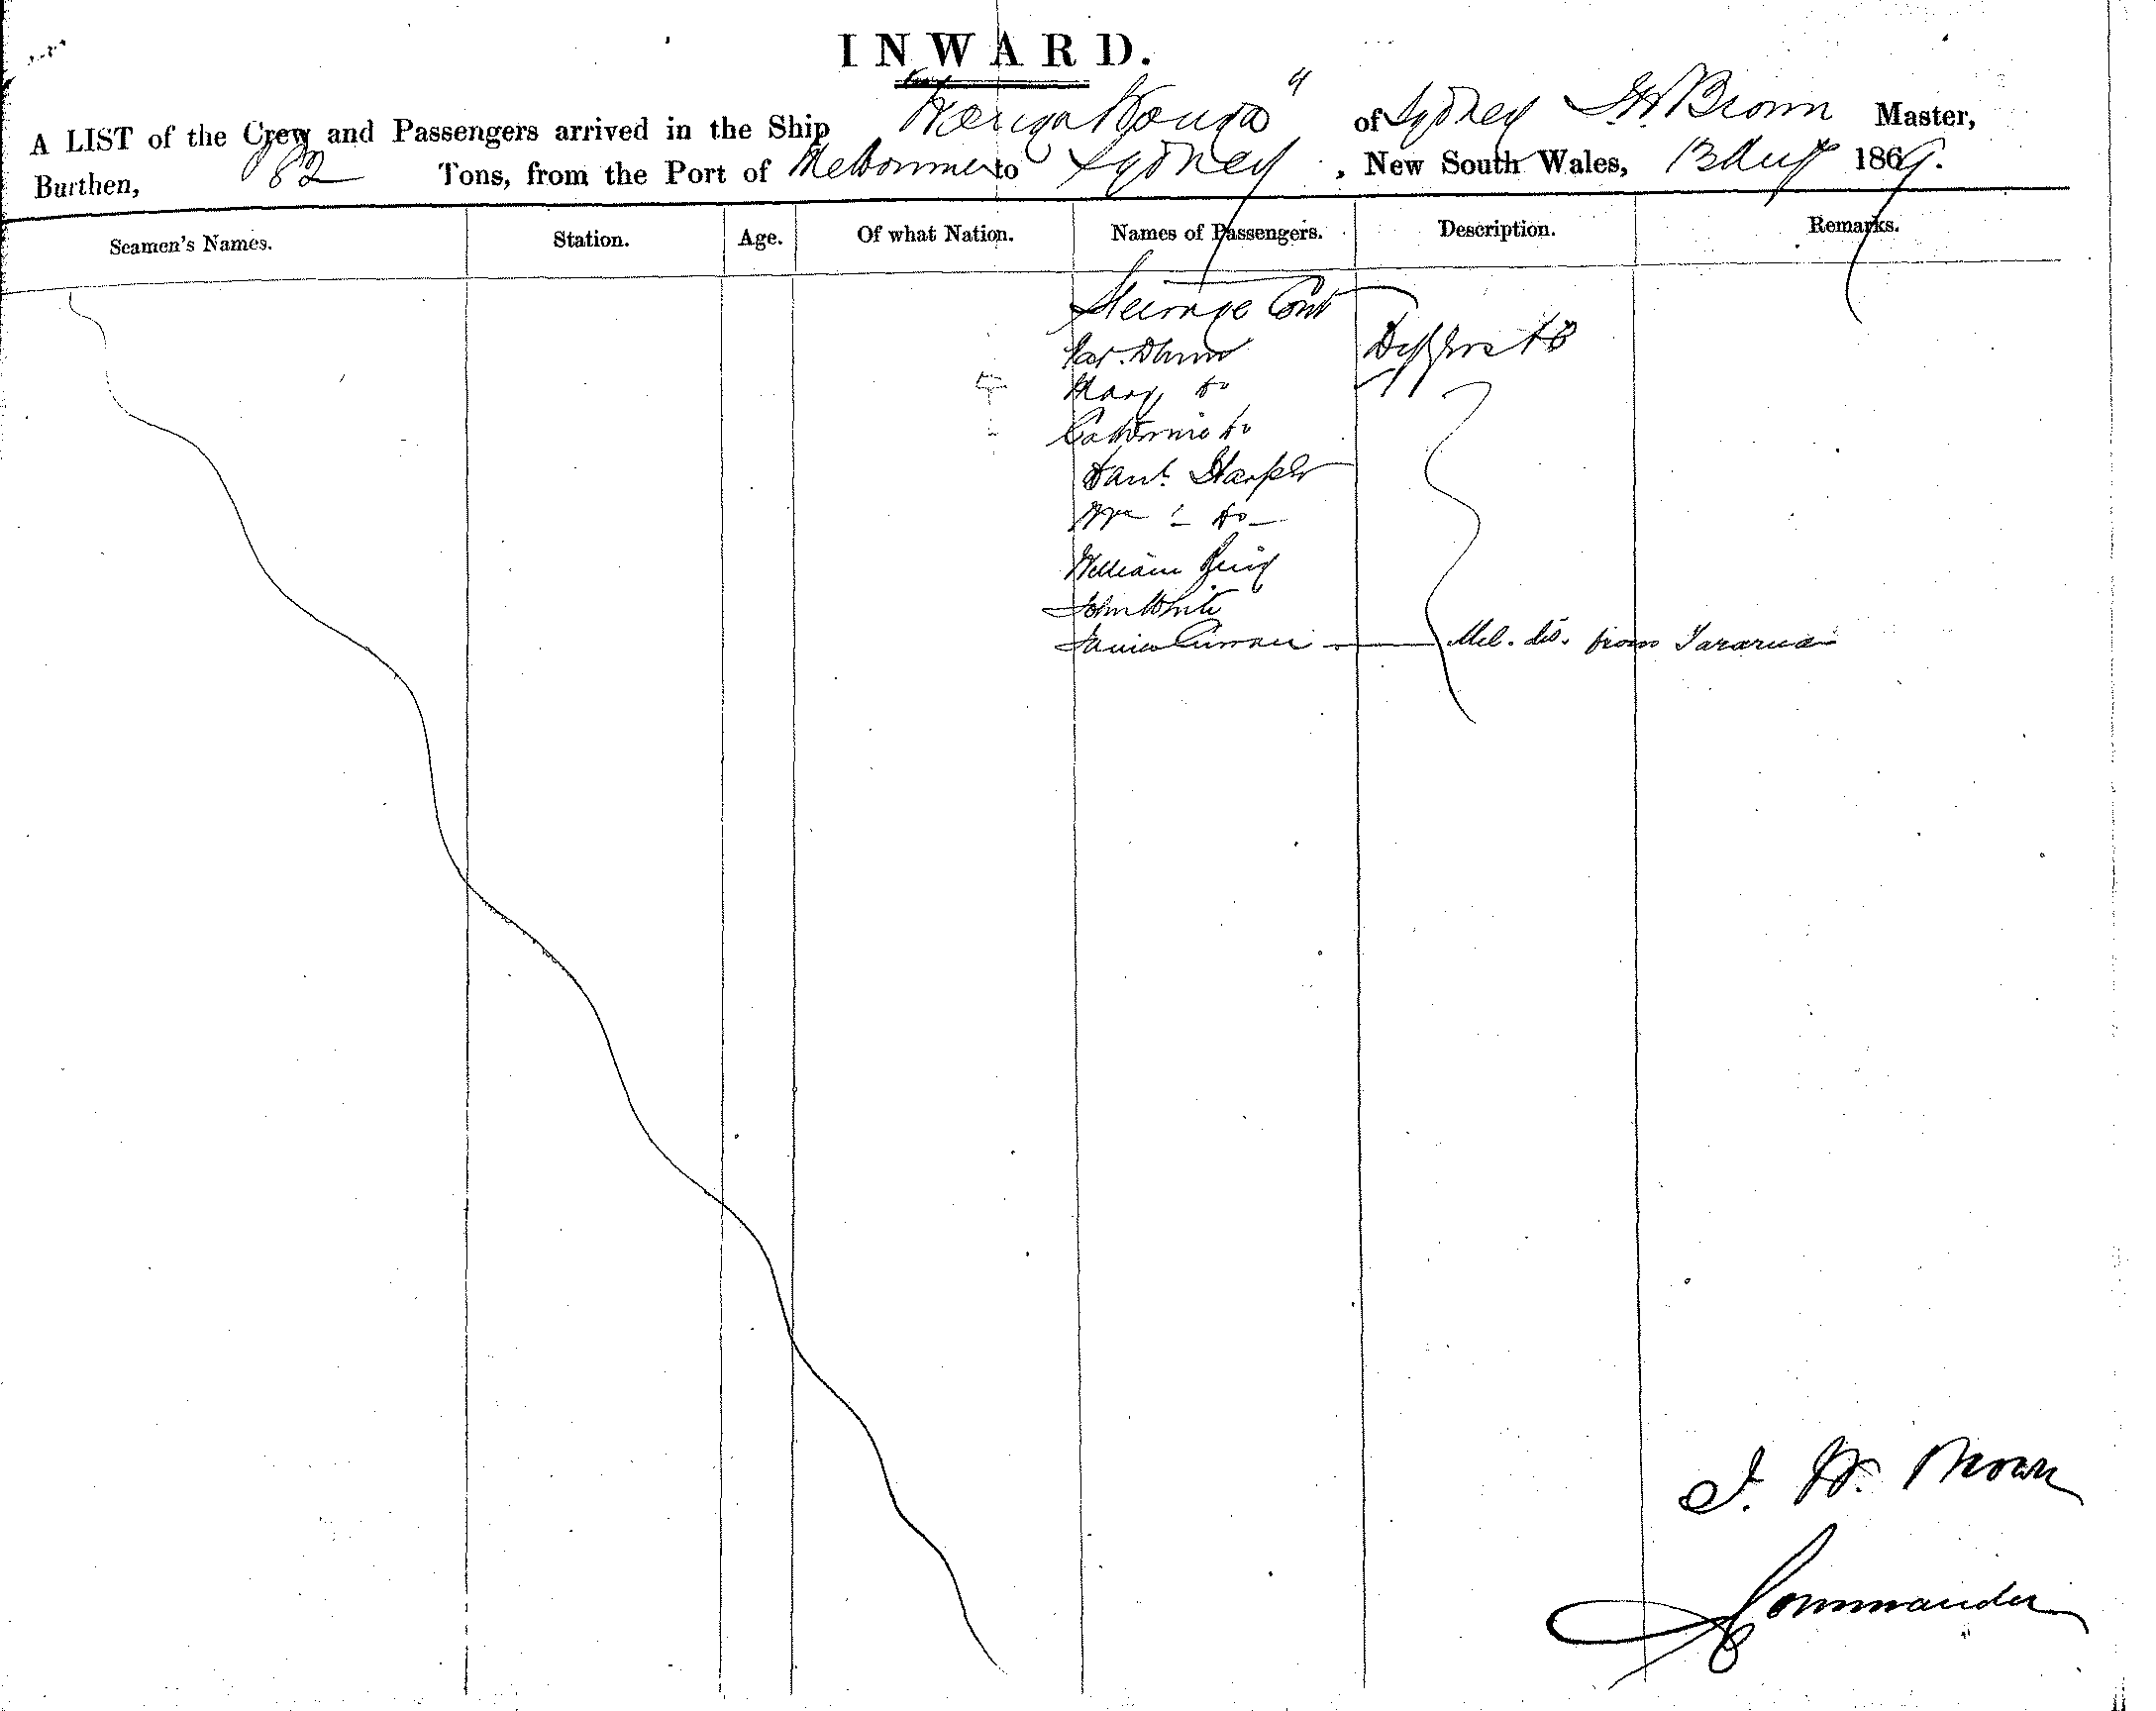 INWARD.
A LIST of the Crew and Passengers arrived in the Ship "Wonga Wonga" of Sydney J. W. Brown Master,
Burthen, 82 Tons, from the Port of Melbourne to Sydney, New South Wales, 13 Augt 1869.
Seamen's Names. Station. Age. Of what Nation. Names of Passengers. Description. Remarks.
Steerage Cont
Pat. Dunn
Mary Do
Catherine Do
Harper
Do
William
John White
Mel. dis. from Tararua
J. W. Brown
Commander